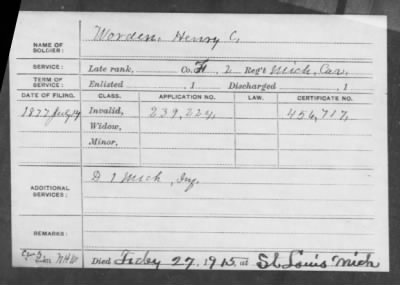 NAME OF SOLDIER: Worden, Henry C,
SERVICE: Late rank, Co. F, 2 Reg't Mich. Cav.
TERM OF SERVICE: Enlisted , 1 Discharged , 1
DATE OF FILING. CLASS. APPLICATION NO. LAW. CERTIFICATE NO.
1877 July 14 Invalid, 239,224, 456,717,
Widow,
Minor,
ADDITIONAL SERVICES: D 1 Mich, Inf.
REMARKS:
Died Feby 27, 1915, at St Louis Mich